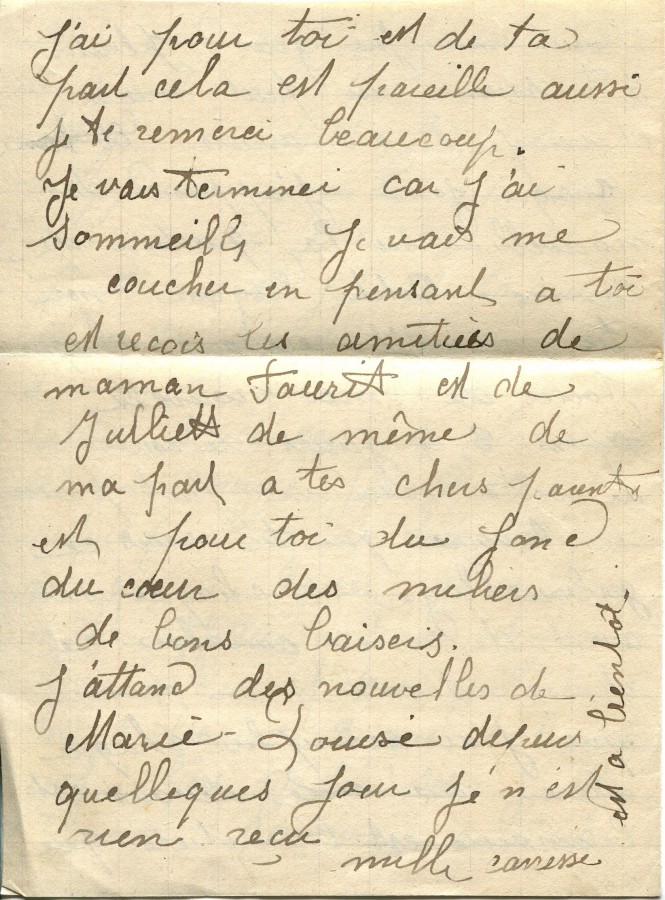 J'ai pour toi est de ta
part cela est pareille aussi
Je te remerci beaucoup.
Je vais terminei car J'ai
sommeille Je vais me
coucher en pensant a toi
est reçois les amitiés de
maman Taurit est de
Julliett de même de
ma part a tes chers parents
est pour toi du fond
du cœur des miliers
de bons baisers.
J'attend des nouvelles de
Marie-Louise depuis
quelleques Jour Je n'est
rien reçu
mille caresse
est a bientot.